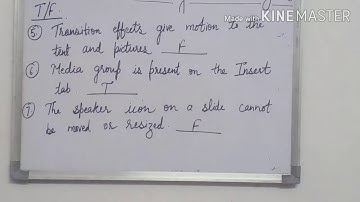 Made with KINEMASTER
T/F.
⑤ Transition effects give motion to the
text and pictures F
⑥ Media group is present on the Insert
tab T
⑦ The speaker icon on a slide cannot
be moved or resized. F